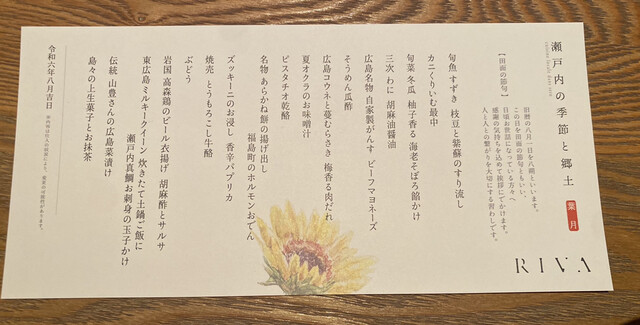 瀬戸内の季節と郷土
葉月
【田面の節句】
旧暦の八月一日を八朔といいます。
この日を田面の節句ともいい、
日頃お世話になっている方々へ
感謝の気持ちを込めて挨拶にでかけます。
人と人との繋がりを大切にする習わしです。
RIVA
旬魚 すずき 枝豆と紫蘇のすり流し
カニくりいむ最中
旬菜 冬瓜 柚子香る 海老そぼろ餡かけ
三次 わに 胡麻油醤油
広島名物 自家製がんす ビーフマヨネーズ
そうめん瓜酢
広島コウネと蔓むらさき 梅香る肉だれ
夏オクラのお味噌汁
ピスタチオ乾酪
名物 あらかね餅の揚げ出し
福島町のホルモンおでん
ズッキーニのお浸し 香辛パプリカ
焼売 とうもろこし牛酪
ぶどう
岩国 高森鶏のビール衣揚げ 胡麻酢とサルサ
東広島 ミルキークイーン 炊きたて土鍋ご飯に
瀬戸内真鯛お刺身の玉子かけ
伝統 山豊さんの広島菜漬け
島々の上生菓子とお抹茶
令和六年八月吉日